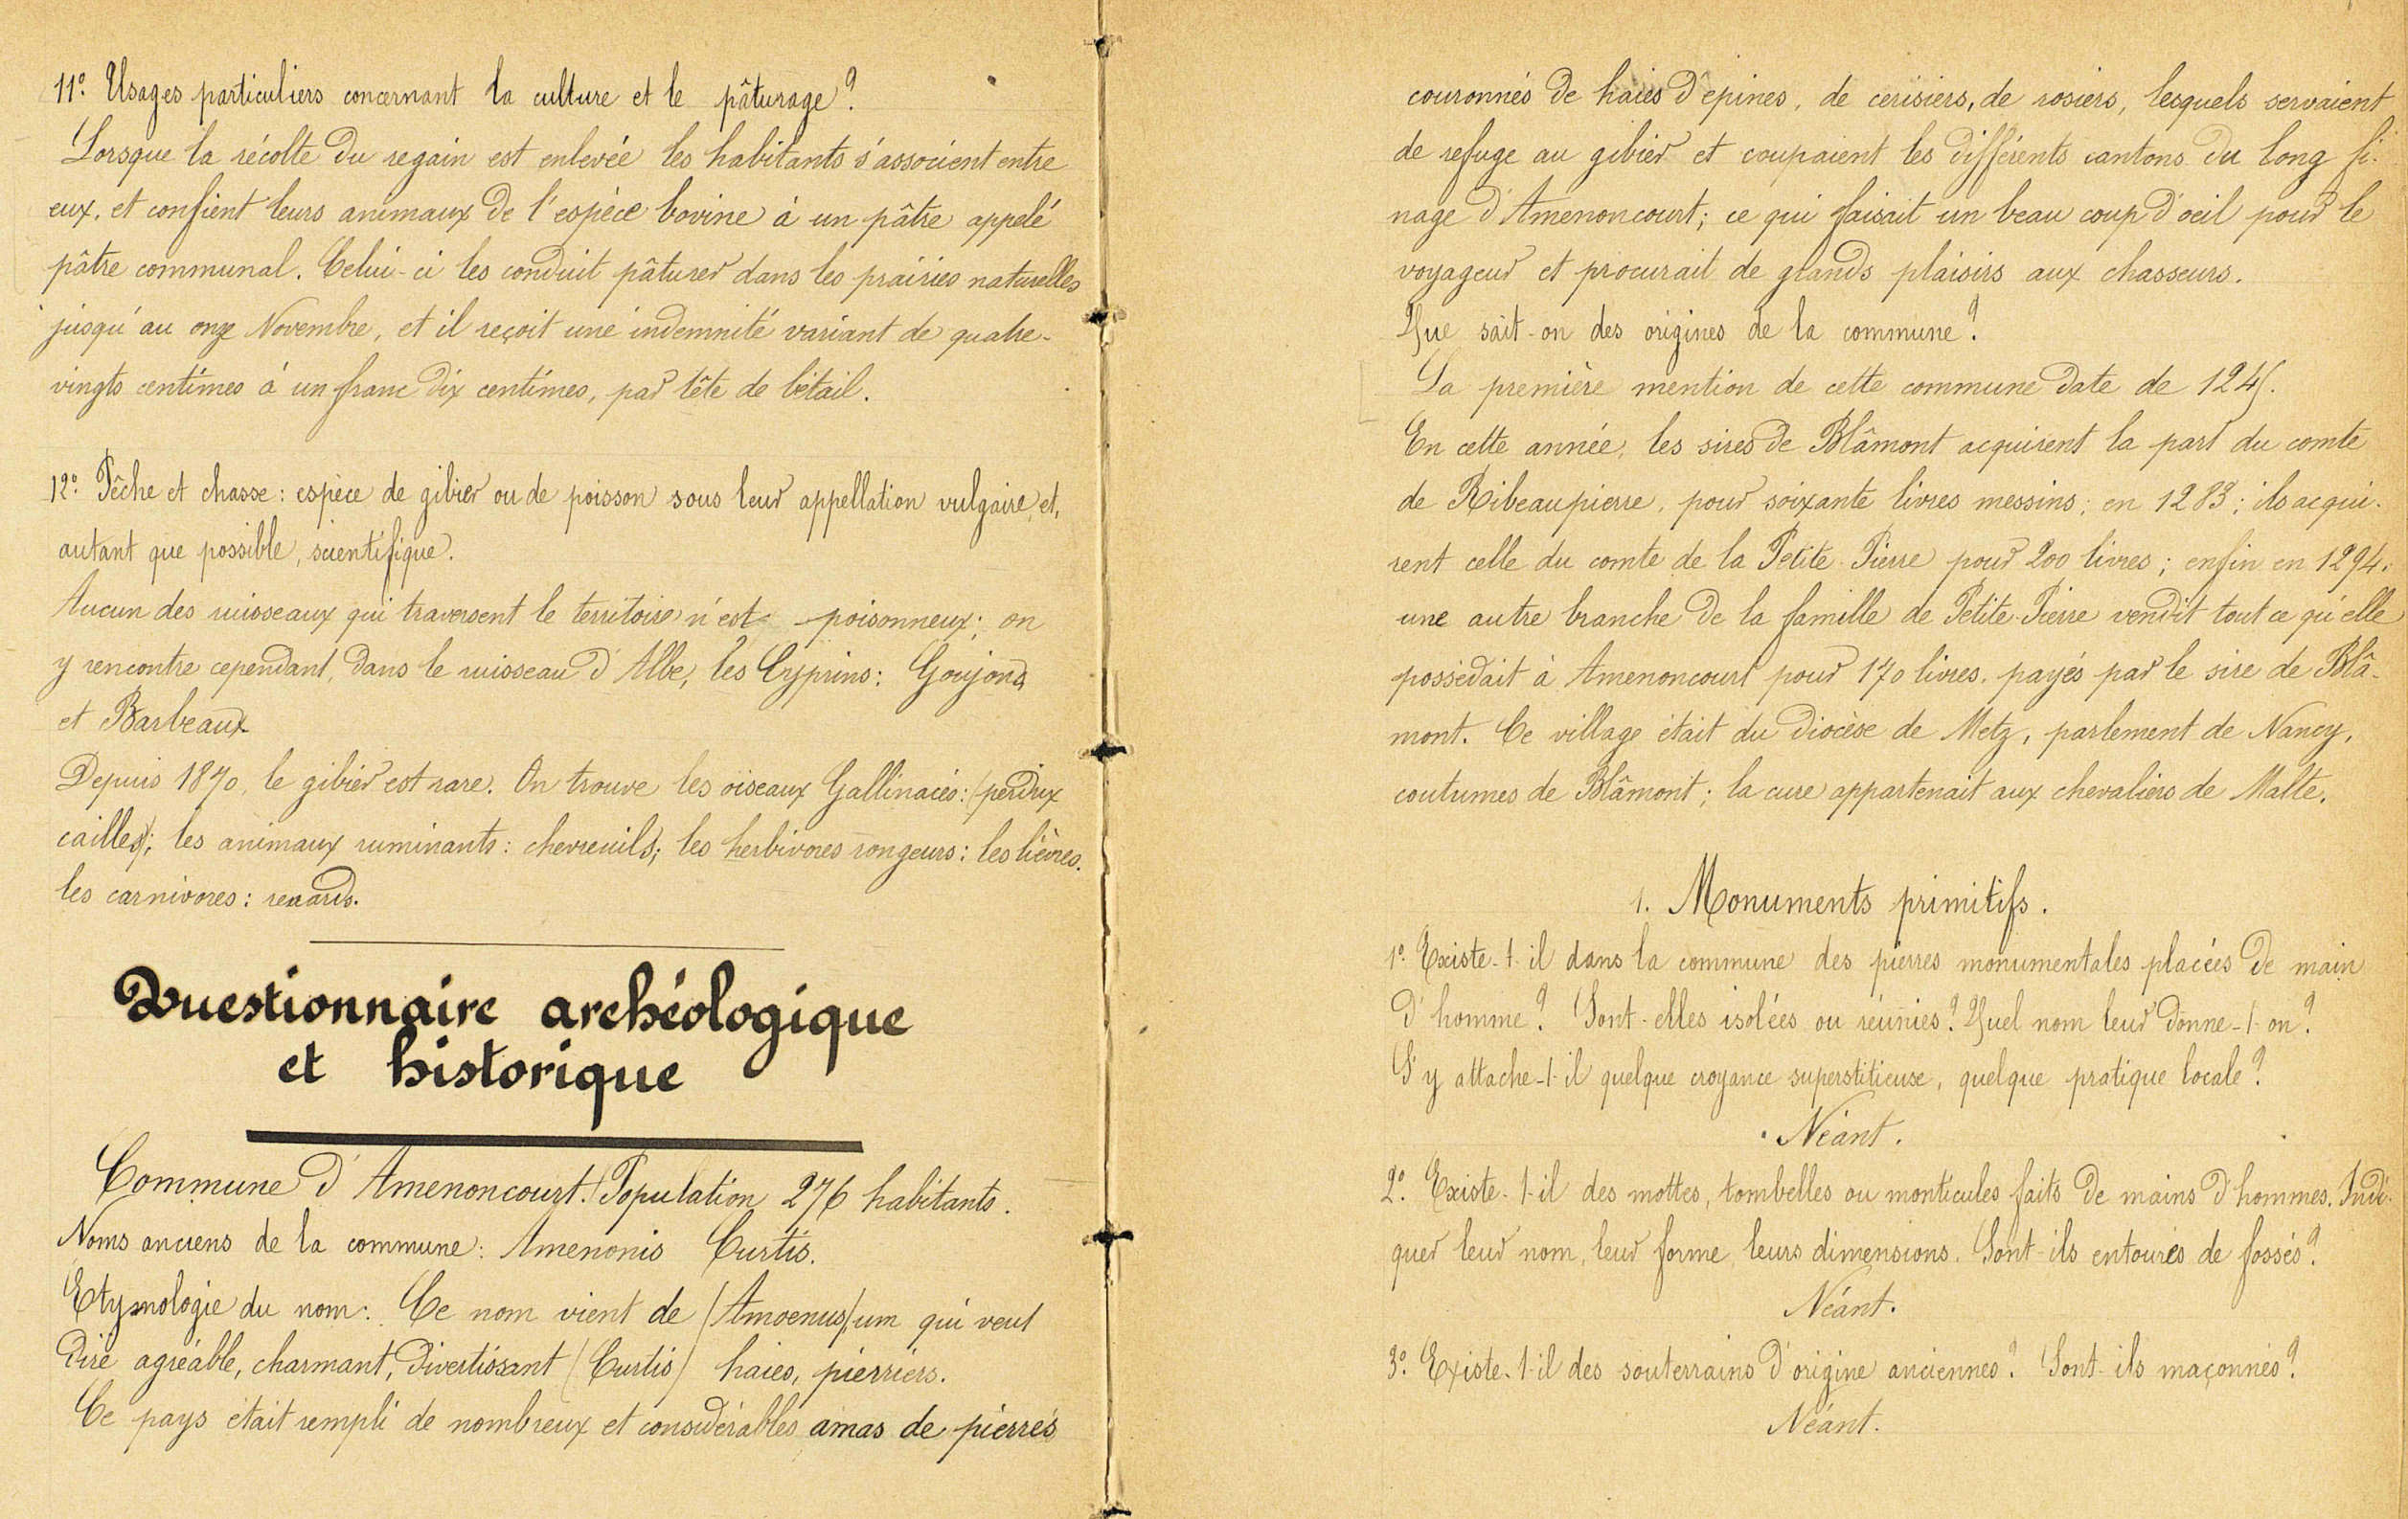 11º Usages particuliers concernant la culture et le pâturage?
Lorsque la récolte du regain est enlevée les habitants s'associent entre
eux, et confient leurs animaux de l'espèce bovine à un pâtre appelé
pâtre communal. Celui-ci les conduit pâturer dans les prairies naturelles
jusqu'au onze Novembre, et il reçoit une indemnité variant de quatre-
vingts centimes à un franc dix centimes, par tête de bétail.
12º Pêche et chasse: espèce de gibier ou de poisson sous leur appellation vulgaire, et,
autant que possible, scientifique.
Aucun des ruisseaux qui traversent le territoire n'est poisonneux; on
y rencontre cependant, dans le ruisseau d'Albe, les Cyprins: Goujons
et Barbeaux
Depuis 1870, le gibier est rare. On trouve les oiseaux Gallinacés: (perdrix
cailles); les animaux ruminants: chevreuils; les herbivores rongeurs: les lièvres.
les carnivores: renards.
Questionnaire archéologique
et historique
Commune d'Amenoncourt. Population 276 habitants.
Noms anciens de la commune: Amenonis Curtis.
Etymologie du nom: Ce nom vient de (Amoenus/um qui veut
dire agréable, charmant, divertissant (Curtis) haies, pierriers.
Ce pays était rempli de nombreux et considérables amas de pierres
couronnés de haies d'épines, de cerisiers, de rosiers, lesquels servaient
de refuge au gibier et coupaient les différents cantons du long fi-
nage d'Amenoncourt; ce qui faisait un beau coup d'oeil pour le
voyageur et procurait de grands plaisirs aux chasseurs.
Que sait-on des origines de la commune?
La première mention de cette commune date de 1245.
En cette année, les sires de Blâmont acquirent la part du comte
de Ribeaupierre, pour soixante livres messins; en 1283; ils acqui-
rent celle du comte de la Petite-Pierre pour 200 livres; enfin en 1294,
une autre branche de la famille de Petite-Pierre vendit tout ce qu'elle
possédait à Amenoncourt pour 170 livres, payés par le sire de Blâ-
mont. Ce village était du diocèse de Metz, parlement de Nancy,
coutumes de Blâmont; la cure appartenait aux chevaliers de Malte.
1. Monuments primitifs.
1º Existe-t-il dans la commune des pierres monumentales placées de main
d'homme? Sont-elles isolées ou réunies? Quel nom leur donne-t-on?
S'y attache-t-il quelque croyance superstitieuse, quelque pratique locale?
Néant.
2º. Existe-t-il des mottes, tombelles ou monticules faits de mains d'hommes. Indi-
quer leur nom, leur forme, leurs dimensions. Sont-ils entourés de fossés?
Néant.
3º. Existe-t-il des souterrains d'origine anciennes? Sont-ils maçonnés?
Néant.